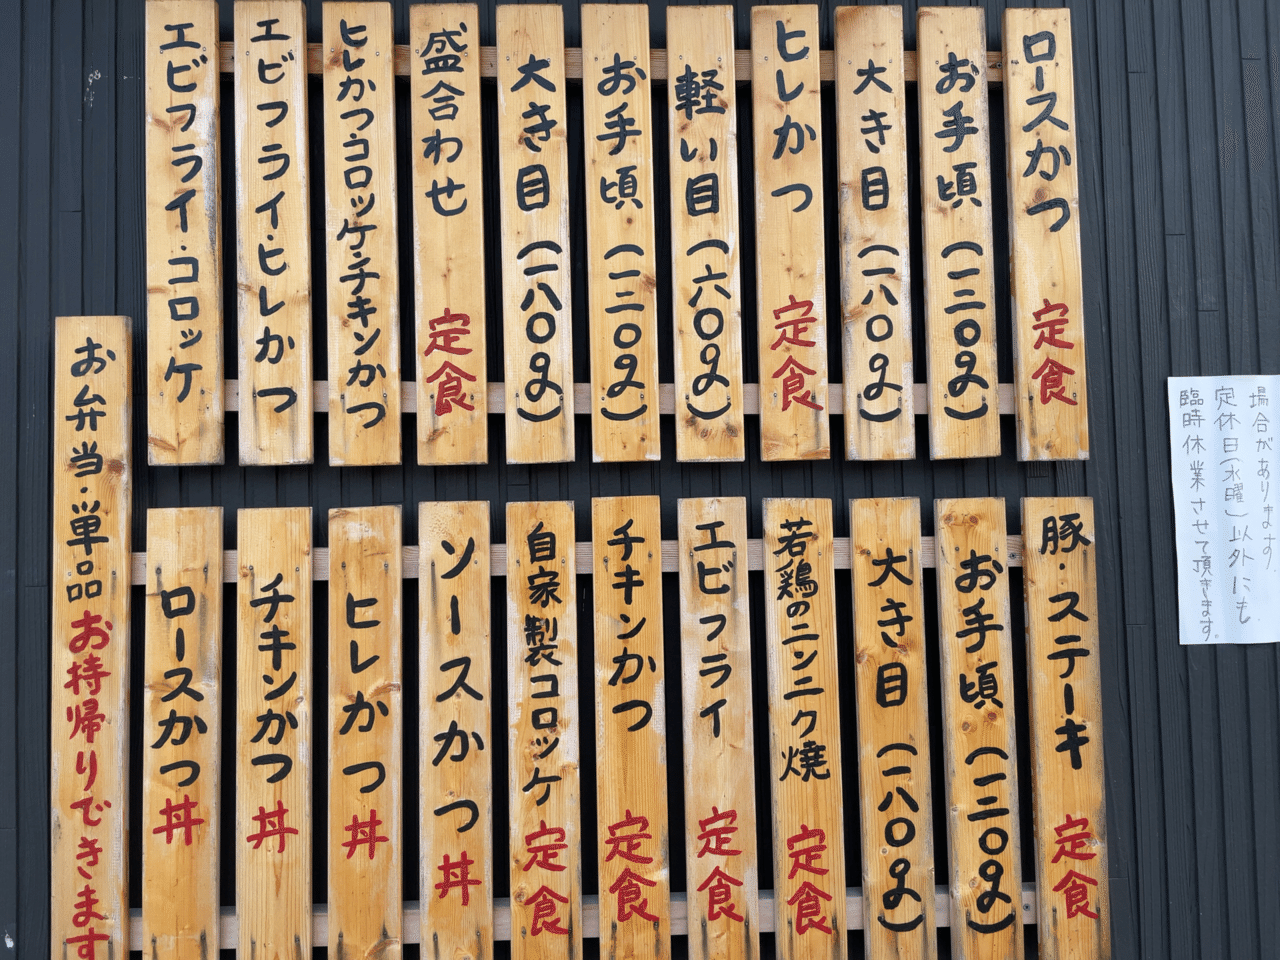 ロースかつ 定食
お手頃(一二〇g)
大き目(一八〇g)
ヒレかつ 定食
軽い目(六〇g)
お手頃(一二〇g)
大き目(一八〇g)
盛合わせ 定食
ヒレかつ・コロッケ・チキンかつ
エビフライ・ヒレかつ
エビフライ・コロッケ
豚・ステーキ 定食
お手頃(一二〇g)
大き目(一八〇g)
若鶏のニンニク焼 定食
エビフライ 定食
チキンかつ 定食
自家製コロッケ 定食
ソースかつ丼
ヒレかつ丼
チキンかつ丼
ロースかつ丼
お弁当・単品お持帰りできます
場合があります。
定休日(水曜)以外にも
臨時休業させて頂きます。